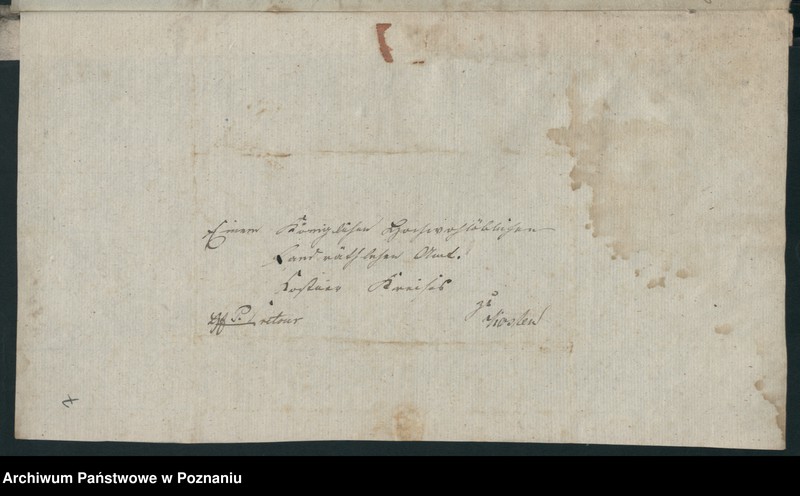 Einem Königlichen Hochwohllöblichen
Landräthlichen Amt.
Kostner Kreises
zu
retour
Kosten
Archiwum Państwowe w Poznaniu